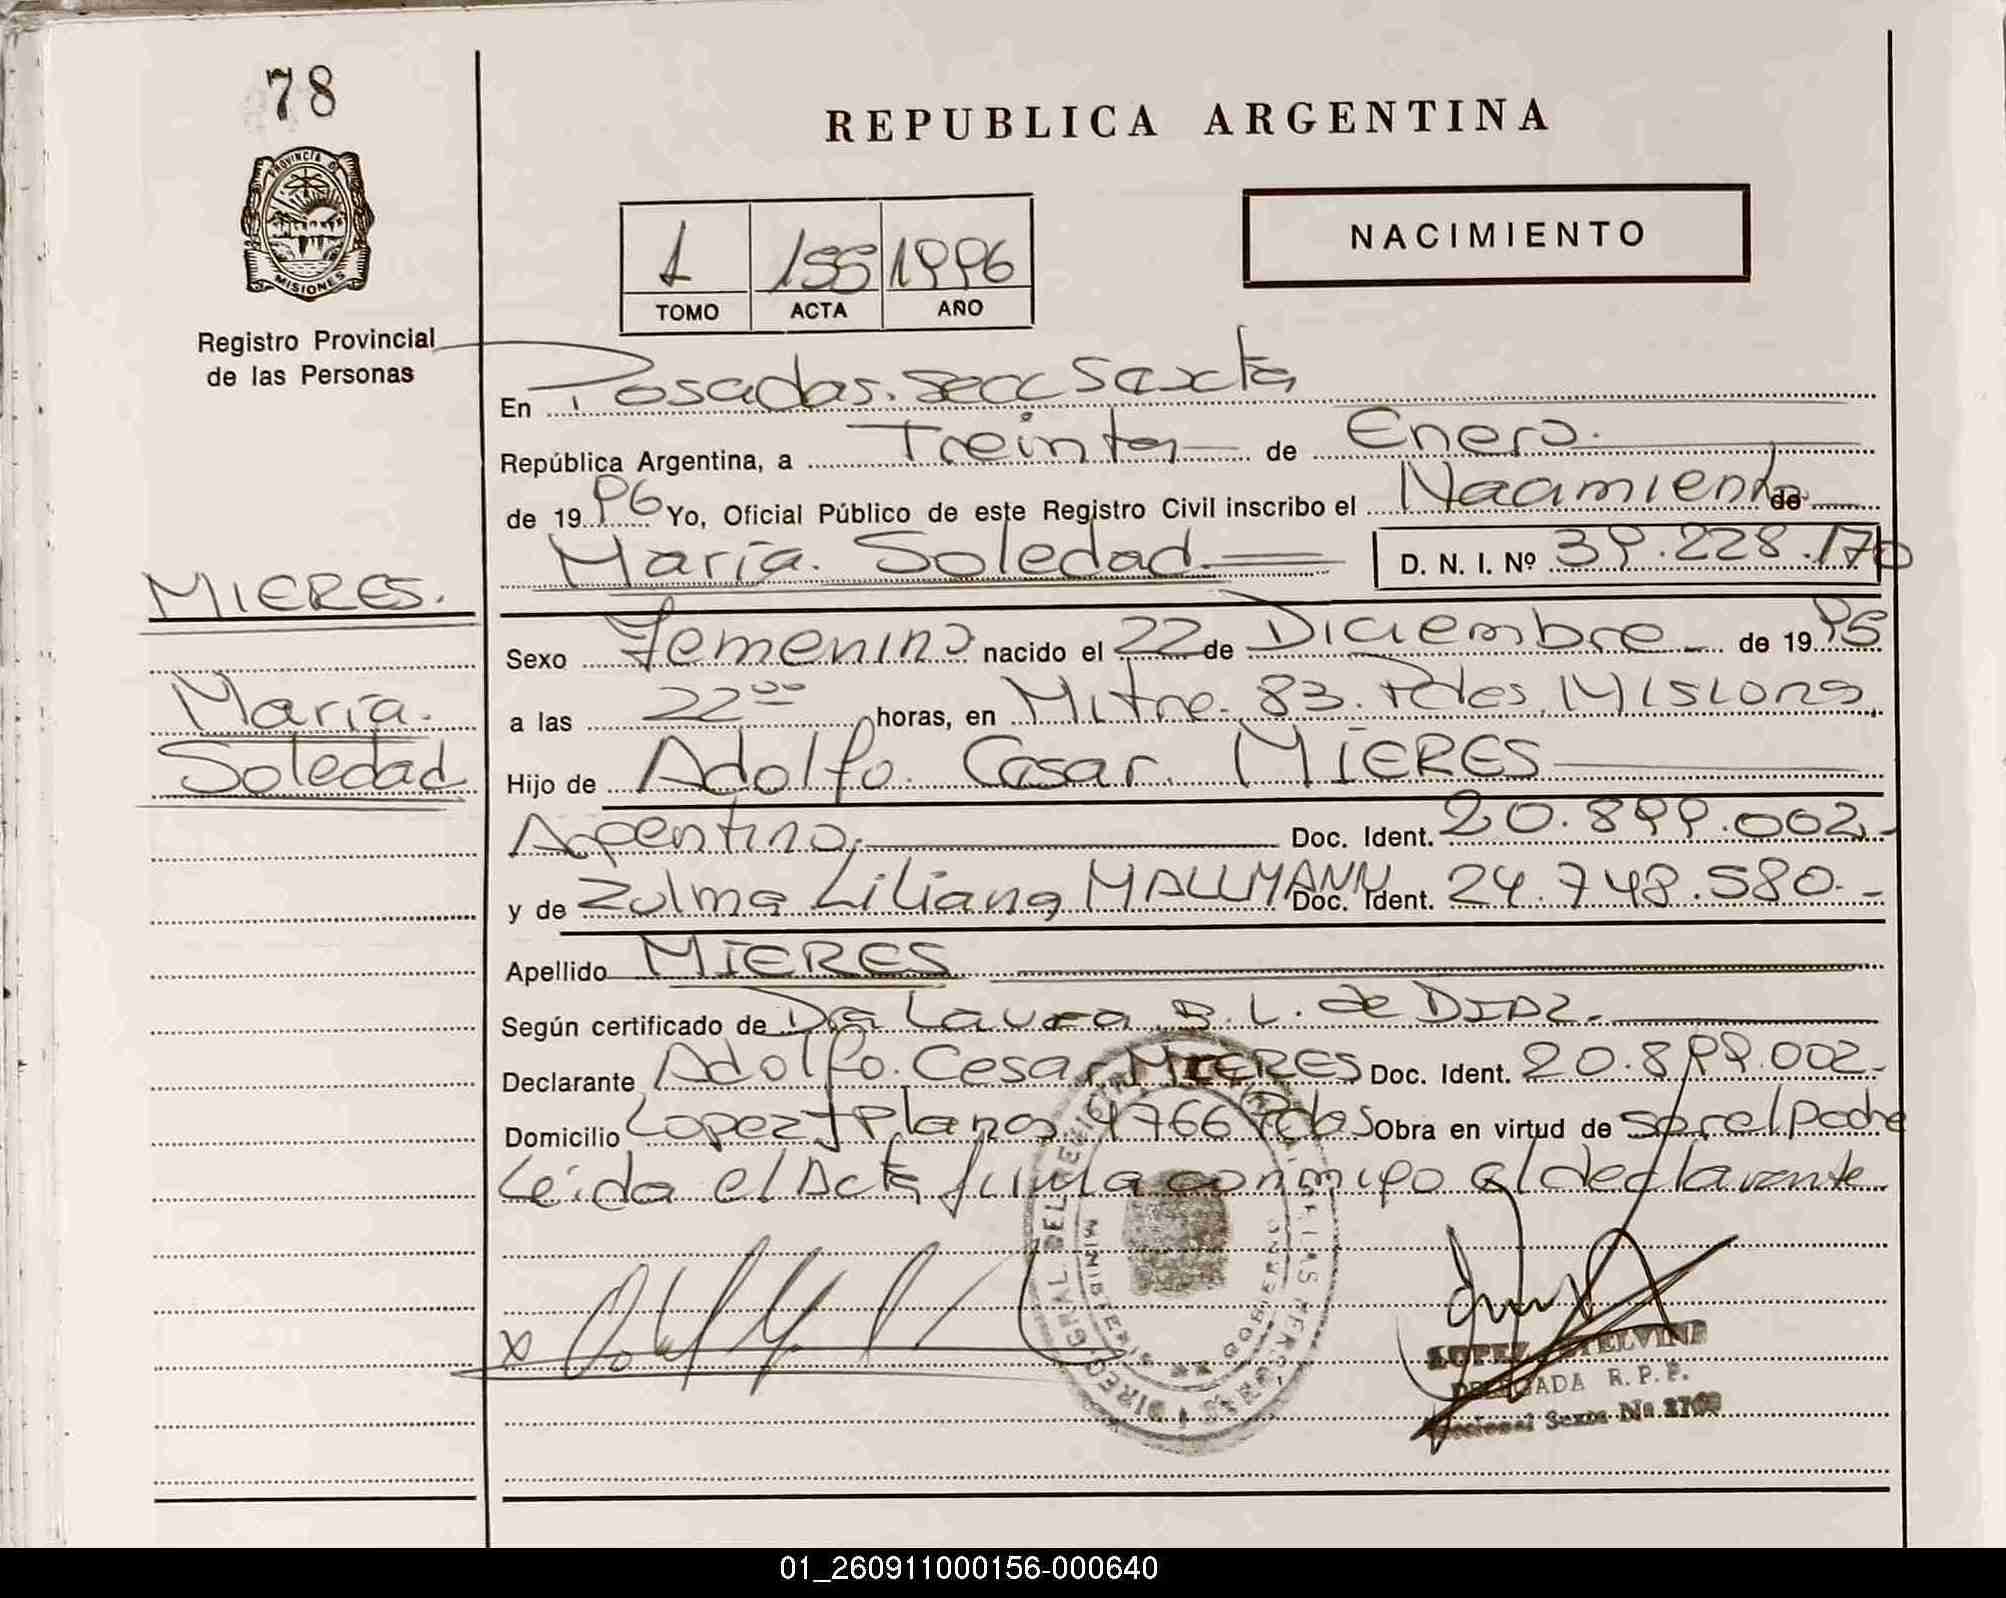 78
PROVINCIA DE
MISIONES
Registro Provincial
de las Personas
REPUBLICA ARGENTINA
1 155 1996
TOMO ACTA AÑO
NACIMIENTO
En Posadas. Secc Sexta
República Argentina, a Treinta de Enero.
de 1996 Yo, Oficial Público de este Registro Civil inscribo el Nacimiento de
María. Soledad D. N. I. Nº 39.228.170
MIERES.
Sexo Femenino nacido el 22 de Diciembre de 1995
María.
Soledad
a las 22⁰⁰ horas, en Mitre. 83. Pdas. Misiones
Hijo de Adolfo. Cesar. MIERES
Argentino. Doc. Ident. 20.899.002.-
y de Zulma Liliana MALLMANN Doc. Ident. 24.748.580.-
Apellido MIERES
Según certificado de Dra Laura B. L. de DIAZ.
Declarante Adolfo. Cesar MIERES Doc. Ident. 20.899.002.-
Domicilio Lopez y Planes 4766 Pdas Obra en virtud de ser el padre
Leida el Acta firma conmigo el declarante
x
DELEGADA R. P. P.
Seccional Sexta
01_260911000156-000640